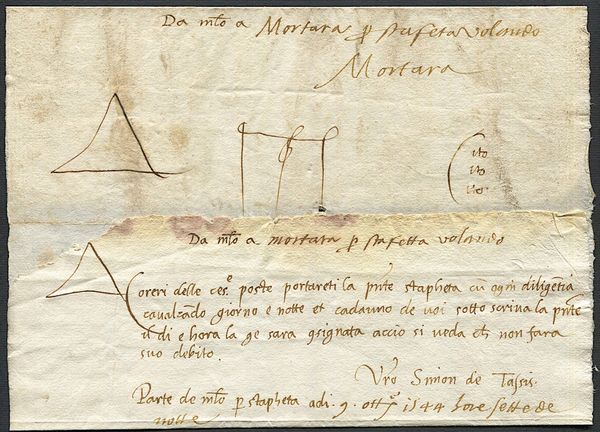 Da mlo a Mortara p stafeta volando
Mortara
ito
ito
ito
Da mlo a mortara p stafetta volando
Coreri delle ces.e poste portareti la pnte stapheta cu ogni diligentia
cavalzado giorno e notte et cadauno de voi sotto scriva la pnte
il di e hora la qe sara gsignata accio si veda ch non fara
suo debito.
Vro Simon de Tassis.
Parte de mlo p stapheta adi. 9. ott.e 1544 hore sette de
notte